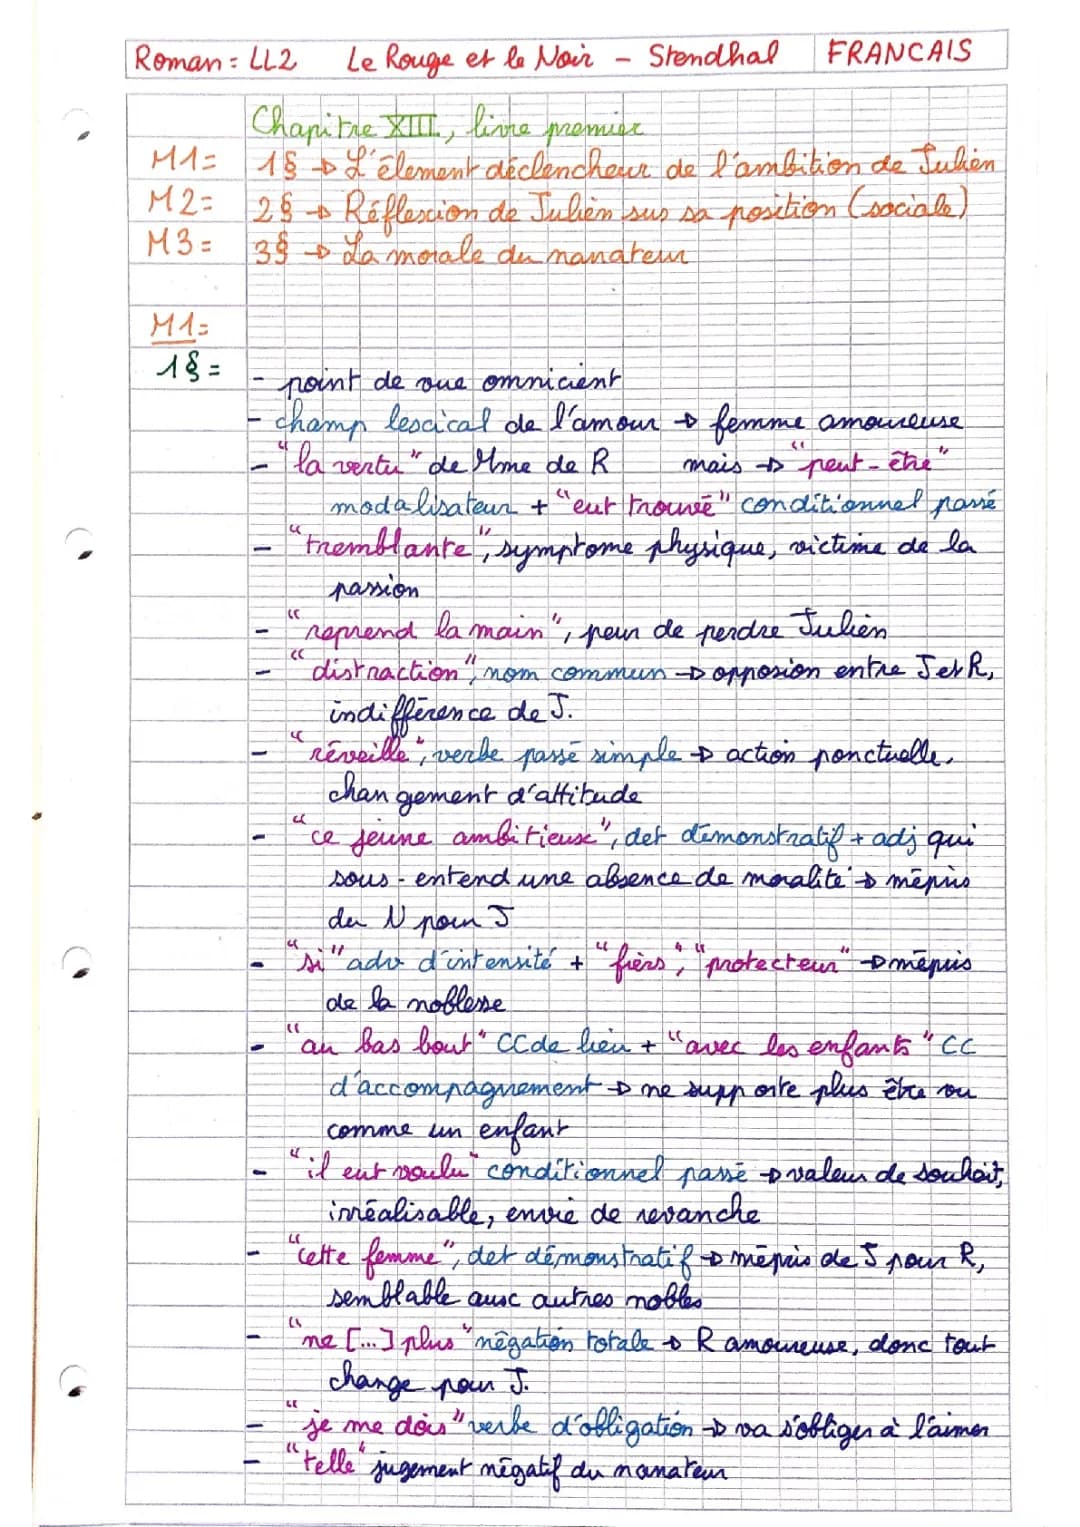 Roman = LL2 Le Rouge et le Noir - Stendhal FRANCAIS
Chapitre XIII, livre premier
M1= 1§ → L'élement déclencheur de l'ambition de Julien
M2= 2§ → Réflexion de Julien sus sa position (sociale)
M3= 3§ → La morale du narrateur
M1=
1§ =
- point de vue omnicient
- champ lexical de l'amour → femme amoureuse
- "la vertu" de Mme de R mais → "peut-être"
modalisateur + "eut trouvé" conditionnel passé
- "tremblante", symptome physique, victime de la
passion
- "reprend la main", peur de perdre Julien
- "distraction", nom commun → opposion entre J et R,
indifférence de J.
- "réveille", verbe passé simple → action ponctuelle,
changement d'attitude
- "ce jeune ambitieux", det démonstratif + adj qui
sous-entend une absence de moralité → mépris
du N pour J
- "si" adv d'intensité + "fiers", "protecteur" → mépris
de la noblesse
- "au bas bout" CC de lieu + "avec les enfants" CC
d'accompagnement → ne supporte plus être vu
comme un enfant
- "il eut voulu" conditionnel passé → valeur de souhait,
irréalisable, envie de revanche
- "cette femme", det démonstratif → mépris de J pour R,
semblable aux autres nobles
- "ne [...] plus" négation totale → R amoureuse, donc tout
change pour J.
- "je me dois" verbe d'obligation → va s'obliger à l'aimer
- "telle" jugement négatif du narrateur